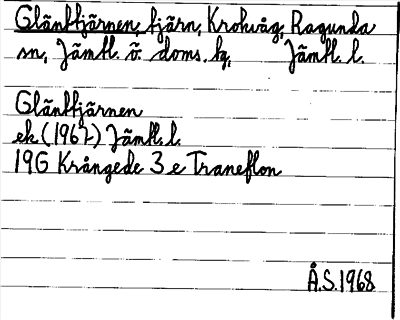 Gläntjärnen, tjärn, Krokvåg, Ragunda
sn, Jämtl. ö. doms. hg, Jämtl. l.
Gläntjärnen
ek (1967) Jämtl. l.
19G Krångede 3 e Traneflon
Å.S. 1968